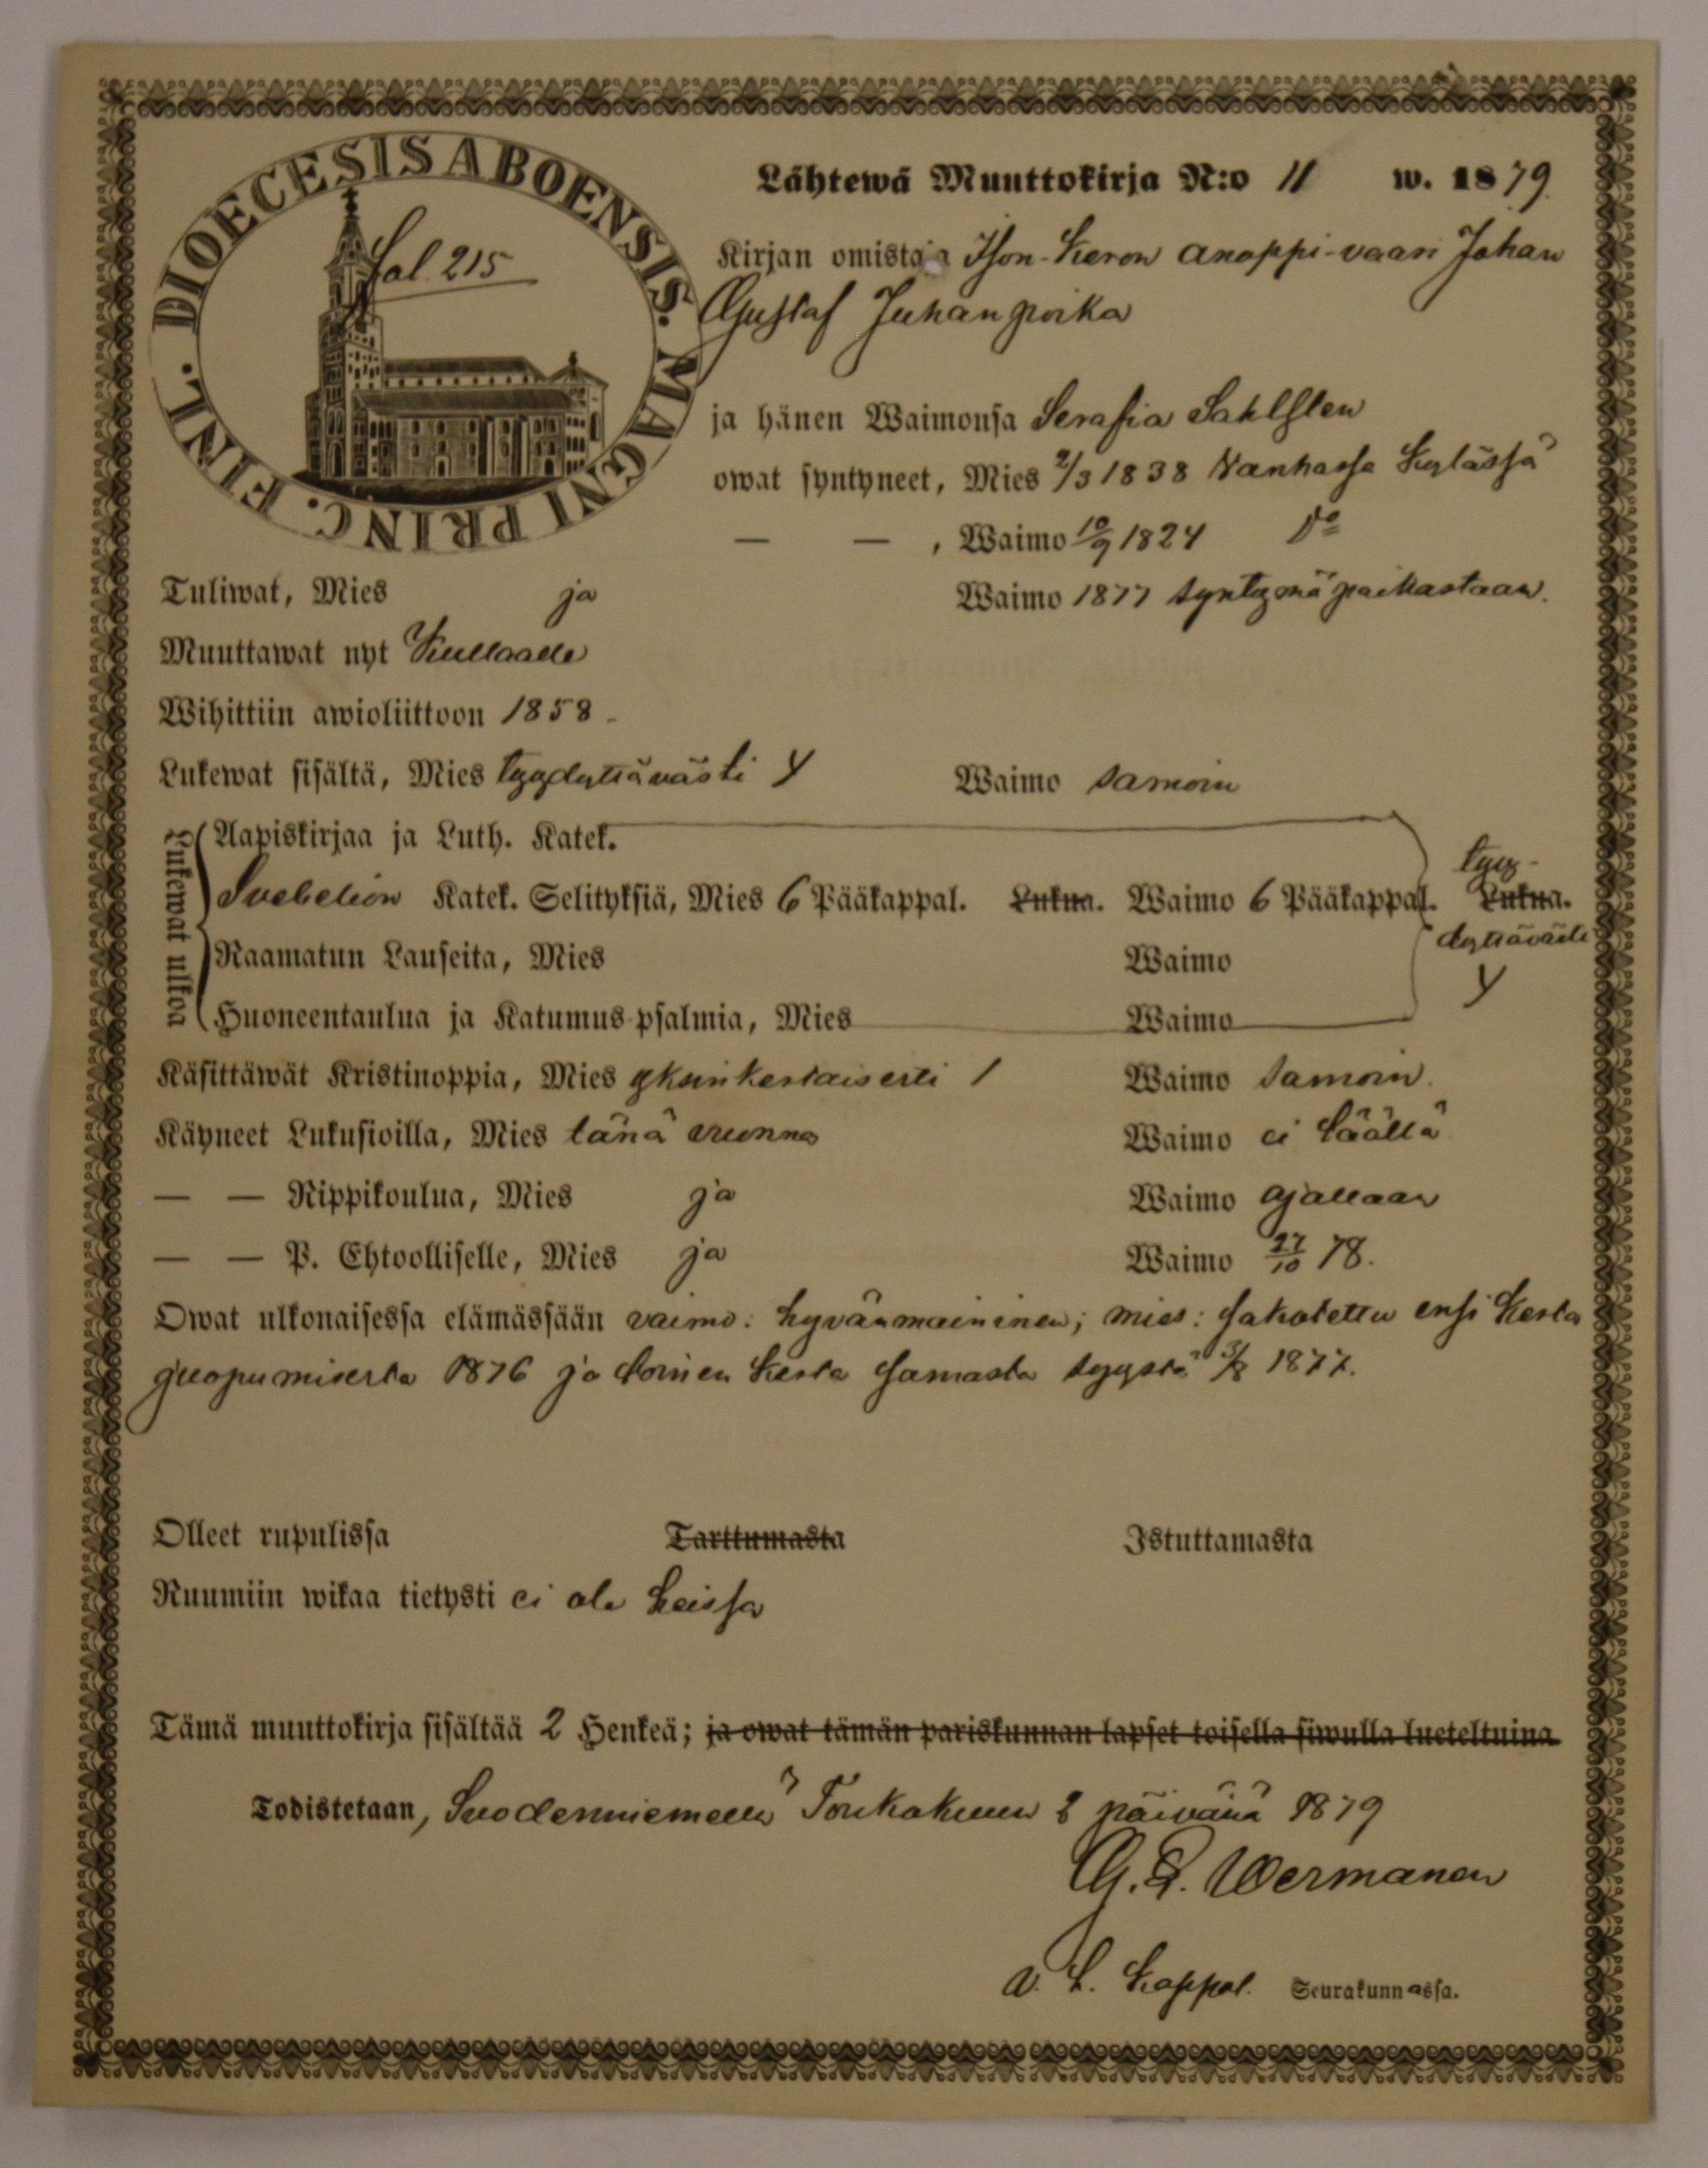 DIOECESIS ABOENSIS. MAGNI PRINC. FINL.
Fol. 215
Lähtewä Muuttokirja N:o 11 w. 1879.
Kirjan omistaja Ison-Keron anoppi-vaari Johan
Gustaf Juhanpoika
ja hänen Waimonsa Serafia Sahlsten
owat syntyneet, Mies 2/3 1838 Vanhassa Kylässä
— — , Waimo 10/9 1824 Do
Tuliwat, Mies ja Waimo 1877 syntymäpaikastaan.
Muuttawat nyt Kullaalle
Wihittiin awioliittoon 1858 -
Lukewat sisältä, Mies tyydyttävästi y Waimo samoin
Lukewat ulkoa
Aapiskirjaa ja Luth. Katek.
Svebelion Katek. Selityksiä, Mies 6 Pääkappal. Lukua. Waimo 6 Pääkappal. Lukua.
tyy-
dyttäväst
y
Raamatun Lauseita, Mies Waimo
Huoneentaulua ja Katumus-psalmia, Mies Waimo
Käsittäwät Kristinoppia, Mies yksinkertaisesti 1 Waimo samoin.
Käyneet Lukusioilla, Mies tänä vuonna Waimo ei täällä
— — Rippikoulua, Mies ja Waimo ajallaan
— — P. Ehtoolliselle, Mies ja Waimo 27/10 78.
Owat ulkonaisessa elämässään vaimo: hyvänmaininen; mies: sakotettu ensi kerta
juopumisesta 1876 ja toinen kerta samasta syystä 3/8 1877.
Olleet rupulissa Tarttumasta Istuttamasta
Ruumiin wikaa tietysti ei ole heissä
Tämä muuttokirja sisältää 2 Henkeä; ja owat tämän pariskunnan lapset toisella siwulla lueteltuina
Todistetaan, Suodenniemellä Toukokuun 2 päivänä 1879
G. L. Wermanen
v. t. Kappal. Seurakunnassa.